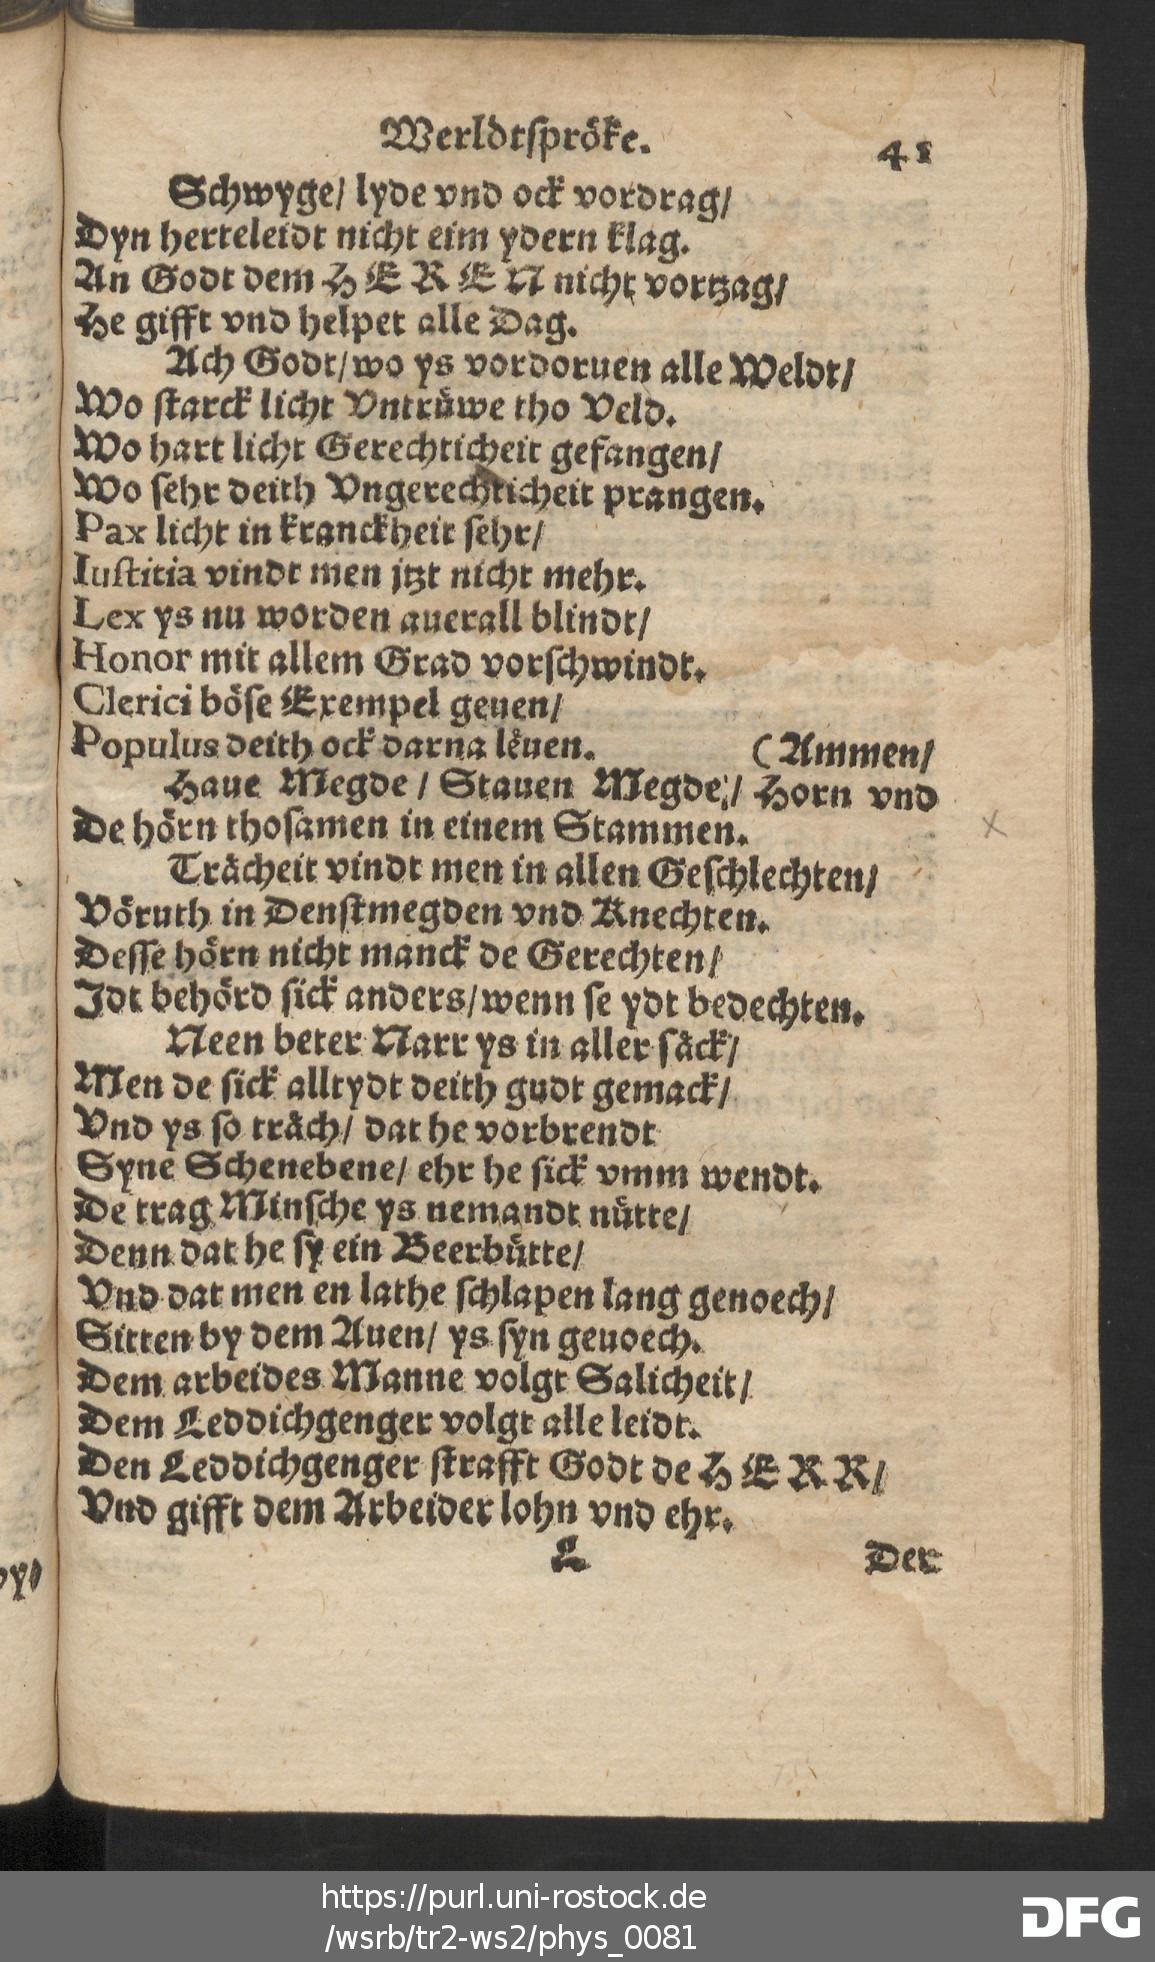 Werldtsprȫke.
41
Schwyge/ lyde vnd ock vordrag/
Dyn herteleidt nicht eim ydern klag.
An Godt dem HEREN nicht vortzag/
He gifft vnd helpet alle Dag.
Ach Godt/ wo ys vordoruen alle Weldt/
Wo starck licht Vntrüwe tho Veld.
Wo hart licht Gerechticheit gefangen/
Wo sehr deith Vngerechticheit prangen.
Pax licht in kranckheit sehr/
Iustitia vindt men jtzt nicht mehr.
Lex ys nu worden auerall blindt/
Honor mit allem Grad vorschwindt.
Clerici böse Exempel geuen/
Populus deith ock darna lěuen.
(Ammen/
Haue Megde / Stauen Megde / Horn vnd
De hörn thosamen in einem Stammen.
Trächeit vindt men in allen Geschlechten/
Vöruth in Denstmegden vnd Knechten.
Desse hörn nicht manck de Gerechten/
Jdt behörd sick anders/ wenn se ydt bedechten.
Neen beter Narr ys in aller säck/
Men de sick alltydt deith gudt gemack/
Vnd ys so träch/ dat he vorbrendt
Syne Schenebene/ ehr he sick vmm wendt.
De trag Minsche ys nemandt nütte/
Denn dat he sy ein Beerbütte/
Vnd dat men en lathe schlapen lang genoech/
Sitten by dem Auen/ ys syn geuoech.
Dem arbeides Manne volgt Salicheit/
Dem Leddichgenger volgt alle leidt.
Den Leddichgenger strafft Godt de HERR/
Vnd gifft dem Arbeider lohn vnd ehr.
L
Der
https://purl.uni-rostock.de
/wsrb/tr2-ws2/phys_0081
DFG